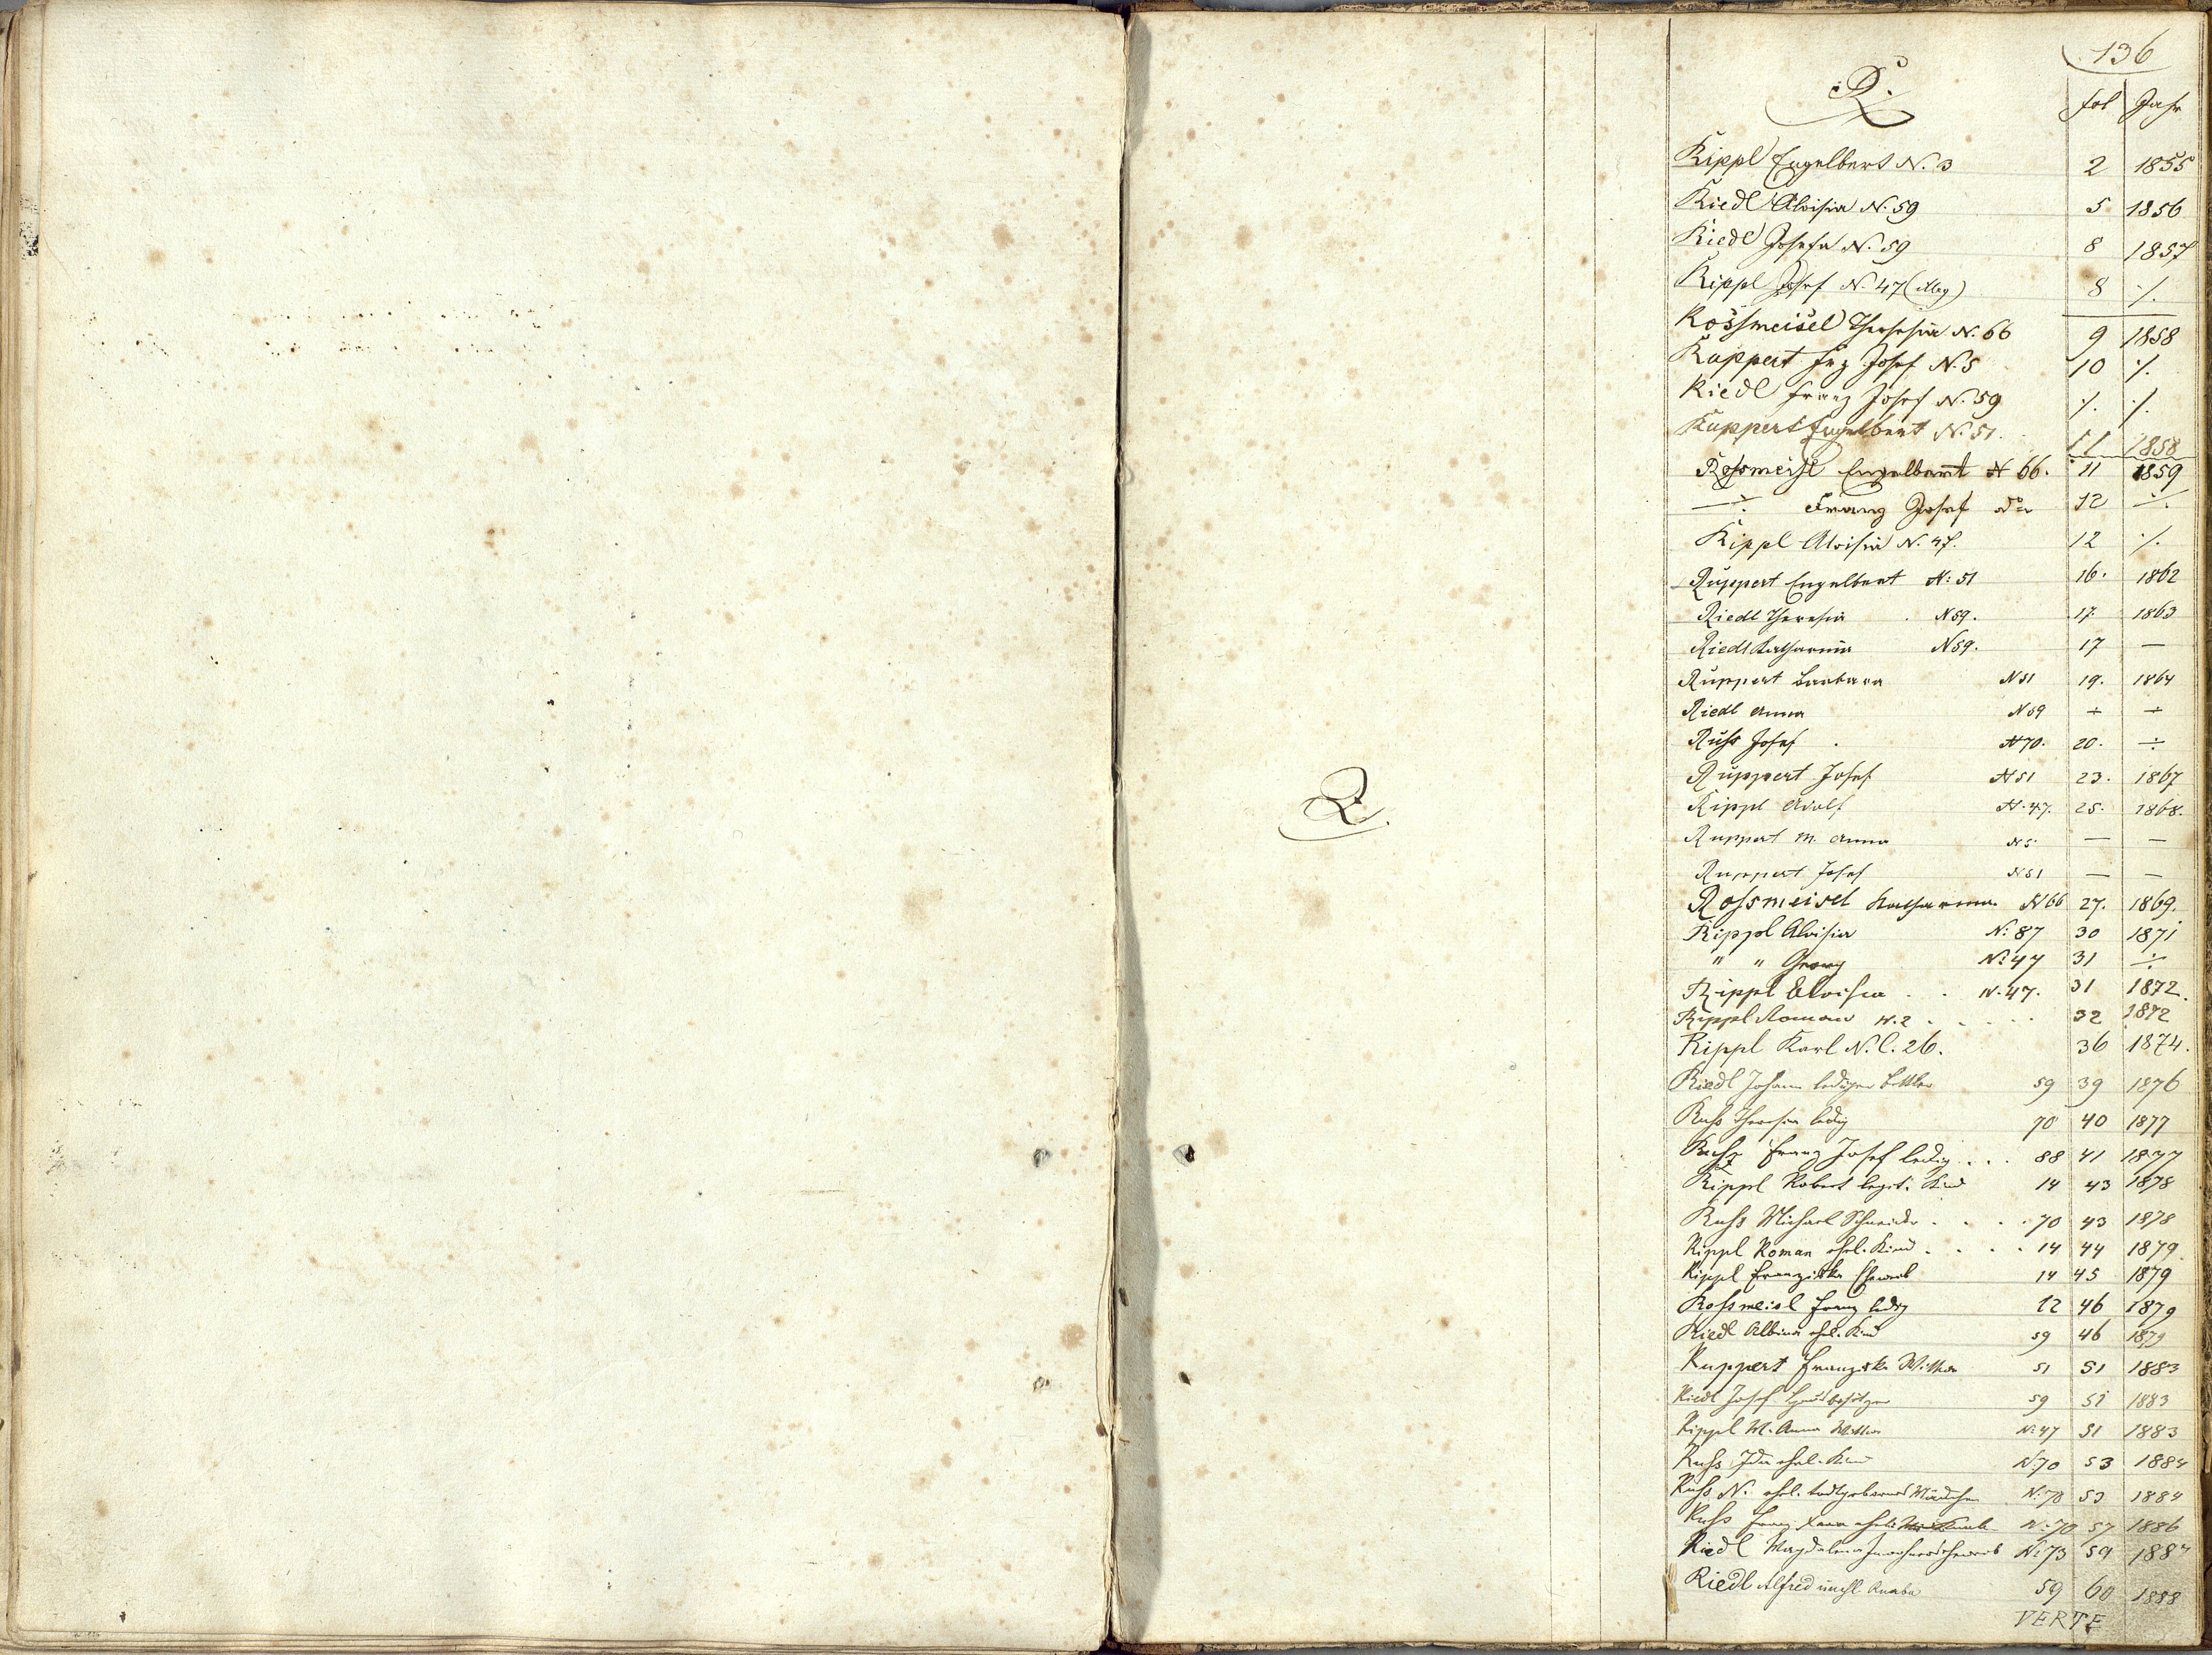 136
R.
fol Jahr
Rippl Engelbert N. 3 2 1855
Riedl Aloisia N. 59 5 1856
Riedl Josefa N. 59 8 1857
Rippl Josef N. 47 8 ·/.
Rossmeisel Theresia N. 66 9 1858
Ruppert Frz Josef N. 5 10 ·/.
Riedl Franz Josef N. 59 ·/. ·/.
Ruppert Engelbert N. 51. 11 1858
Rossmeisl Engelbert N 66. 11 1859
÷ Franz Josef dto 12 ÷
Rippl Aloisia N. 47. 12 ·/.
Ruppert Engelbert N: 51 16. 1862
Riedl Theresia N 59. 17. 1863
Riedl Katharina N 59. 17 —
Ruppert Barbara N 51 19. 1864
Riedl Anna N 59 ÷ ÷
Ruß Josef N 70. 20. ÷
Ruppert Josef N 51 23. 1867
Rippl Adolf N. 47. 25. 1868.
Ruppert M. Anna N 5. — —
Ruppert Josef N 51 — —
Rossmeisel Katharina N 66 27. 1869.
Rippl Aloisia N: 87 30 1871
" " Georg N: 47 31 ÷
Rippl Aloisia . . N. 47. 31 1872.
Rippl Roman N. 2 . . . . . 32 1872
Rippl Karl N. C. 26. 36 1874.
Riedl Johann lediger Bettler 59 39 1876
Ruß Theresia ledig 70 40 1877
Ruß Franz Josef ledig . . . 88 41 1877
Rippl Robert legit. Kind 14 43 1878
Ruß Michael Schneider . . . . 70 43 1878
Rippl Roman ehel. Kind . . . . 14 44 1879
Rippl Franziska Eheweib 14 45 1879
Rossmeisl Franz ledig 12 46 1879
Riedl Albina ehel. Kind 59 46 1879
Ruppert Franziska Witwe 51 51 1883
Riedl Josef Hausbesitzer 59 51 1883
Rippl M. Anna Witwe N: 47 51 1883
Ruß Ida ehel. Kind N: 70 53 1884
Ruß N. ehel. todtgeborenes Mädchen N: 78 53 1884
Ruß Franz Xaver ehel. Knabe N: 70 57 1886
Riedl Magdalena Inwohners Eheweib N: 73 59 1887
Riedl Alfred unehl. Knabe 59 60 1888
VERTE
R.